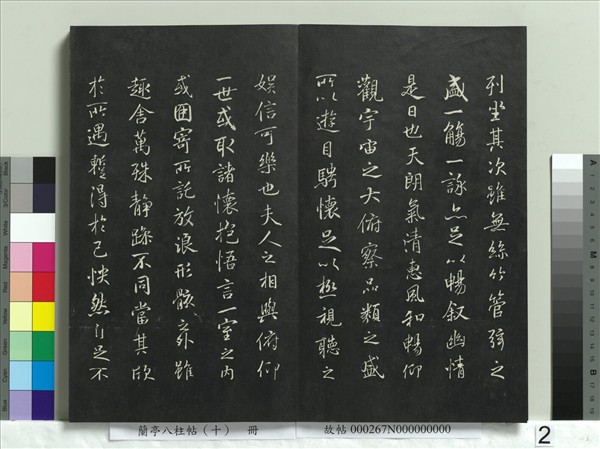 列坐其次雖無絲竹管弦之
盛一觴一詠亦足以暢叙幽情
是日也天朗氣清惠風和暢仰
觀宇宙之大俯察品類之盛
所以遊目騁懷足以極視聽之
娛信可樂也夫人之相與俯仰
一世或取諸懷抱悟言一室之內
或因寄所託放浪形骸之外雖
趣舍萬殊靜躁不同當其欣
於所遇暫得於己怏然自足不
蘭亭八柱帖（十） 冊
故帖 000267N000000000
2